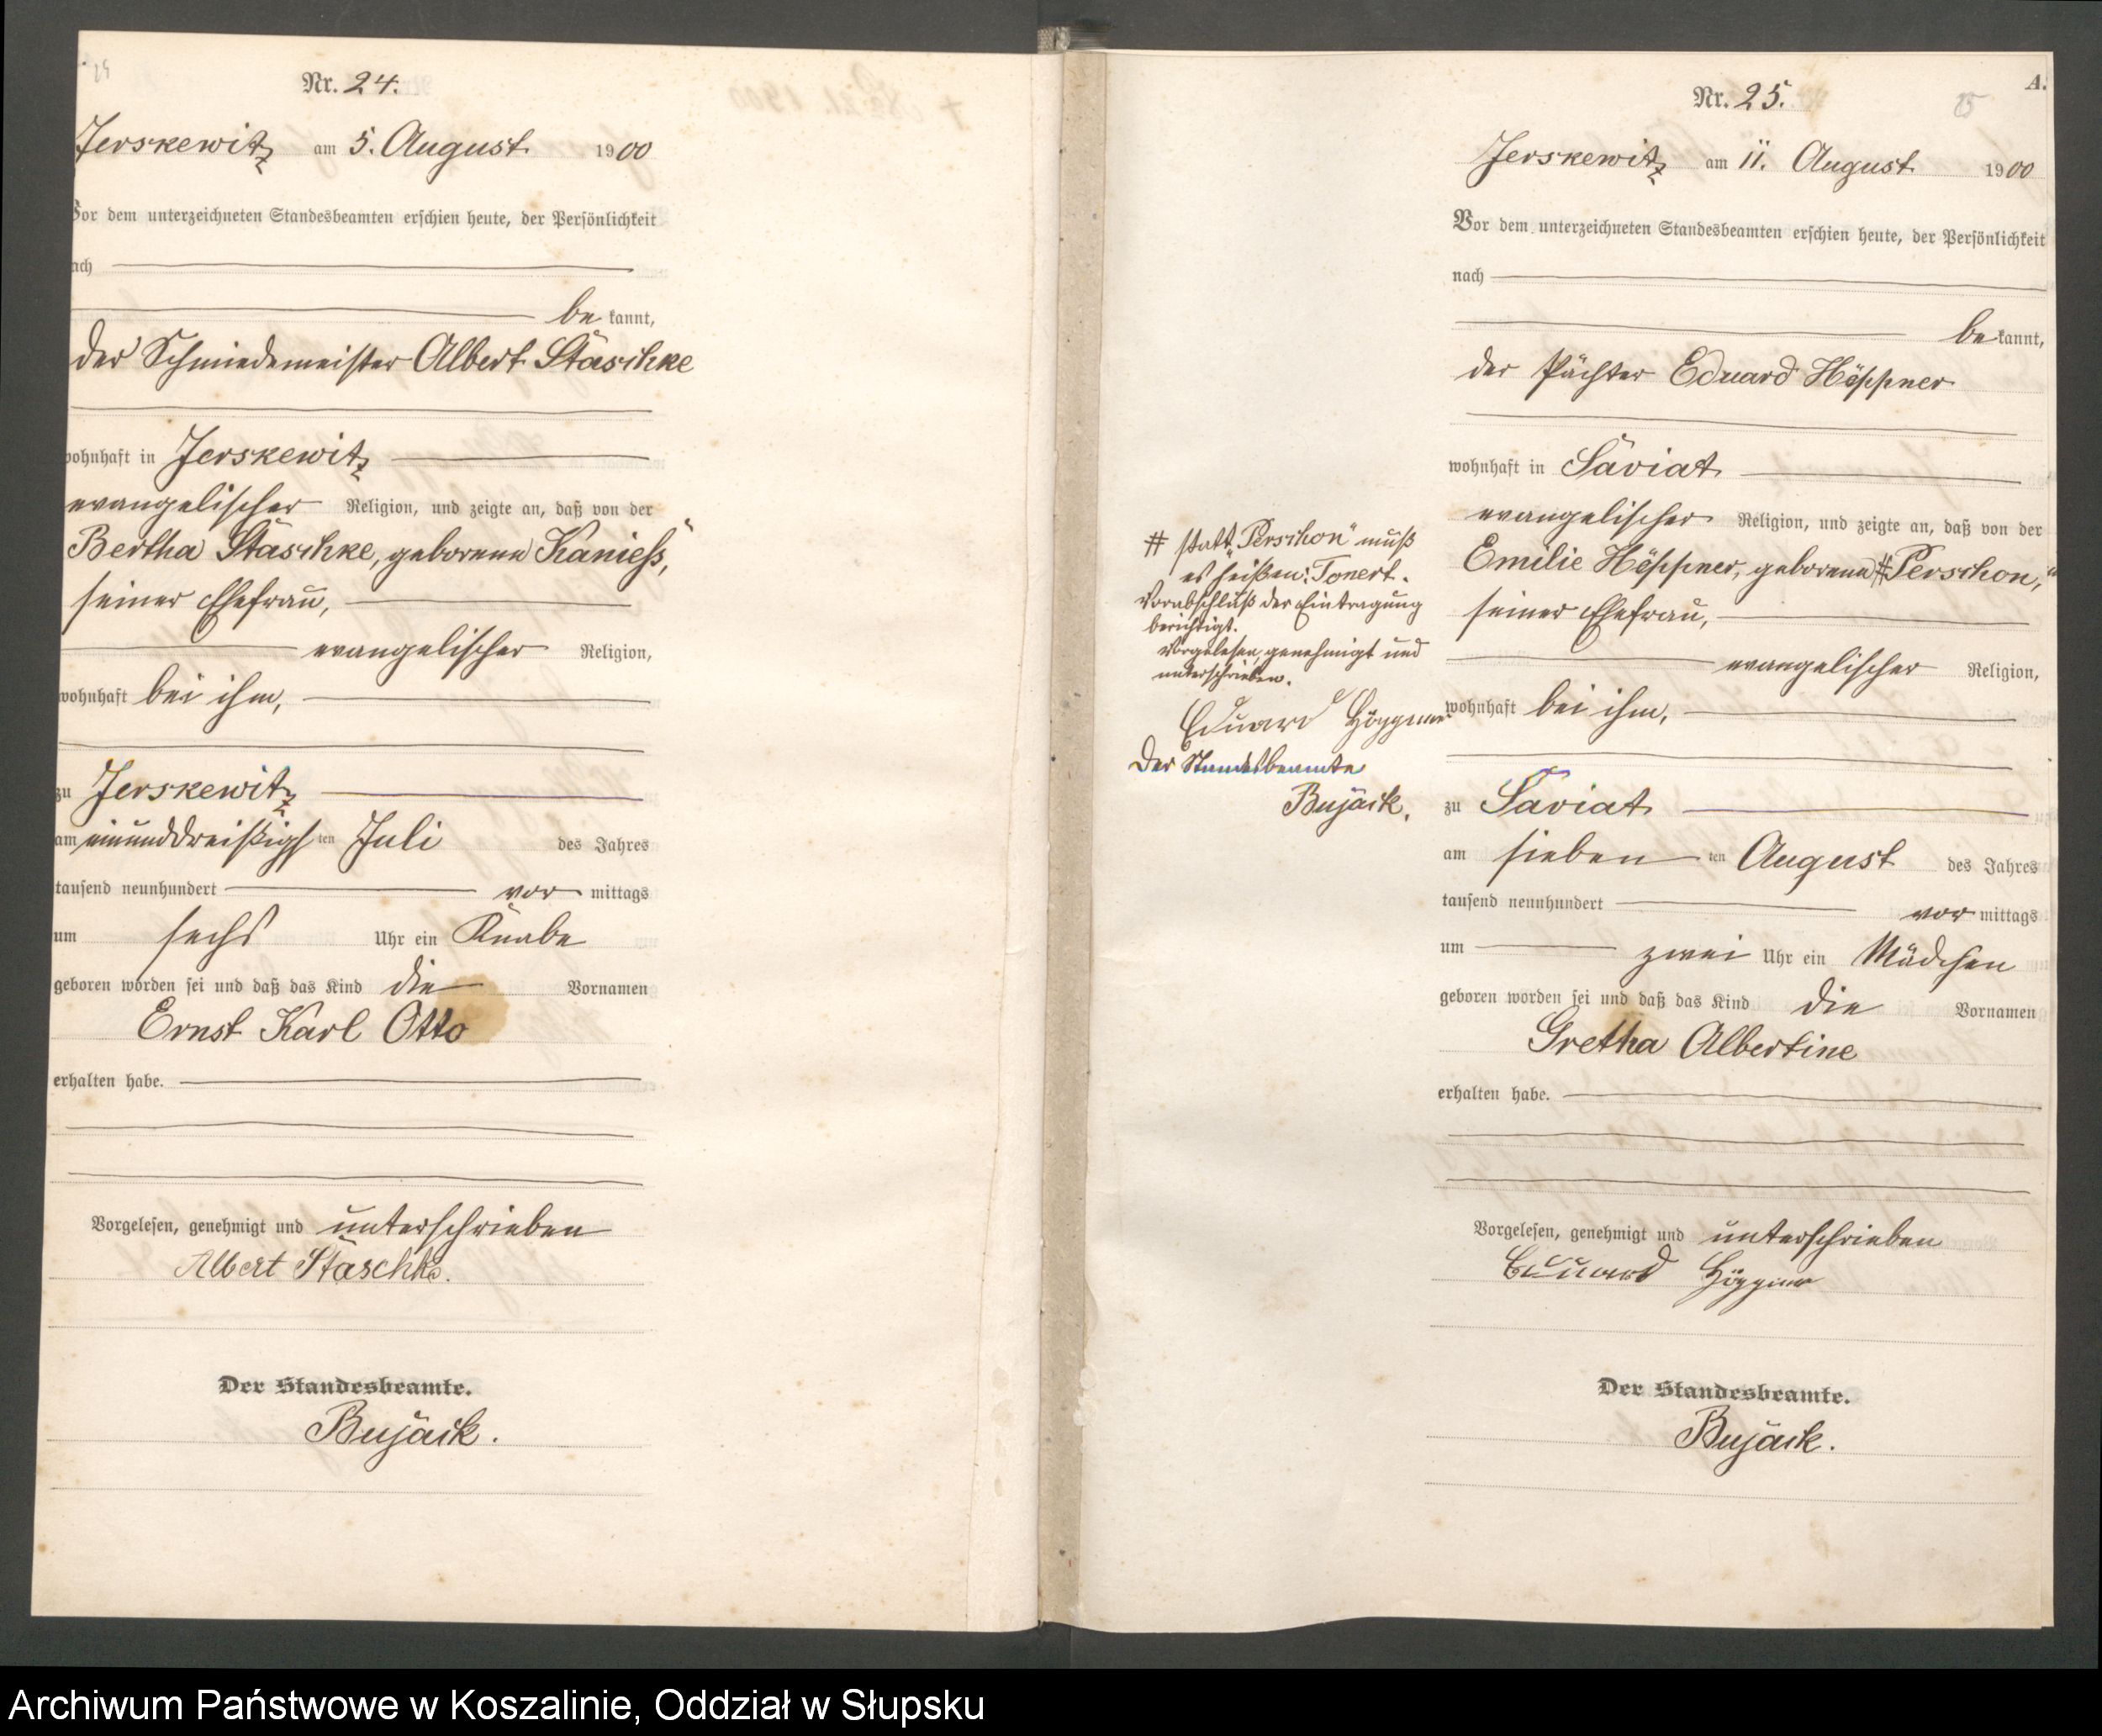 24
Nr. 24.
Jerskewitz am 5. August 1900
Vor dem unterzeichneten Standesbeamten erschien heute, der Persönlichkeit
nach
be kannt,
der Schmiedemeister Albert Stäschke
wohnhaft in Jerskewitz
evangelischer Religion, und zeigte an, daß von der
Bertha Stäschke, geborenen Kaniess,
seiner Ehefrau,
evangelischer Religion,
wohnhaft bei ihm,
zu Jerskewitz
am einunddreißigsten Juli des Jahres
tausend neunhundert vor mittags
um sechs Uhr ein Knabe
geboren worden sei und daß das Kind die Vornamen
Ernst Karl Otto
erhalten habe.
Vorgelesen, genehmigt und unterschrieben
Albert Stäschke.
Der Standesbeamte.
Bujack.
A.
25
Nr. 25.
Jerskewitz am 11. August 1900
Vor dem unterzeichneten Standesbeamten erschien heute, der Persönlichkeit
nach
be kannt,
der Pächter Eduard Höppner
wohnhaft in Saviat
evangelischer Religion, und zeigte an, daß von der
Emilie Höppner, geborenen # „Perschon,“
seiner Ehefrau,
evangelischer Religion,
wohnhaft bei ihm,
zu Saviat
am sieben ten August des Jahres
tausend neunhundert vor mittags
um zwei Uhr ein Mädchen
geboren worden sei und daß das Kind die Vornamen
Gretha Albertine
erhalten habe.
Vorgelesen, genehmigt und unterschrieben
Eduard Höppner
Der Standesbeamte.
Bujack.
# statt „Perschon“ muß
es heißen: Tonert.
Vor abschluß der Eintragung
berichtigt.
Vorgelesen, genehmigt und
unterschrieben.
Eduard Höppner
Der Standesbeamte
Bujack.
Archiwum Państwowe w Koszalinie, Oddział w Słupsku